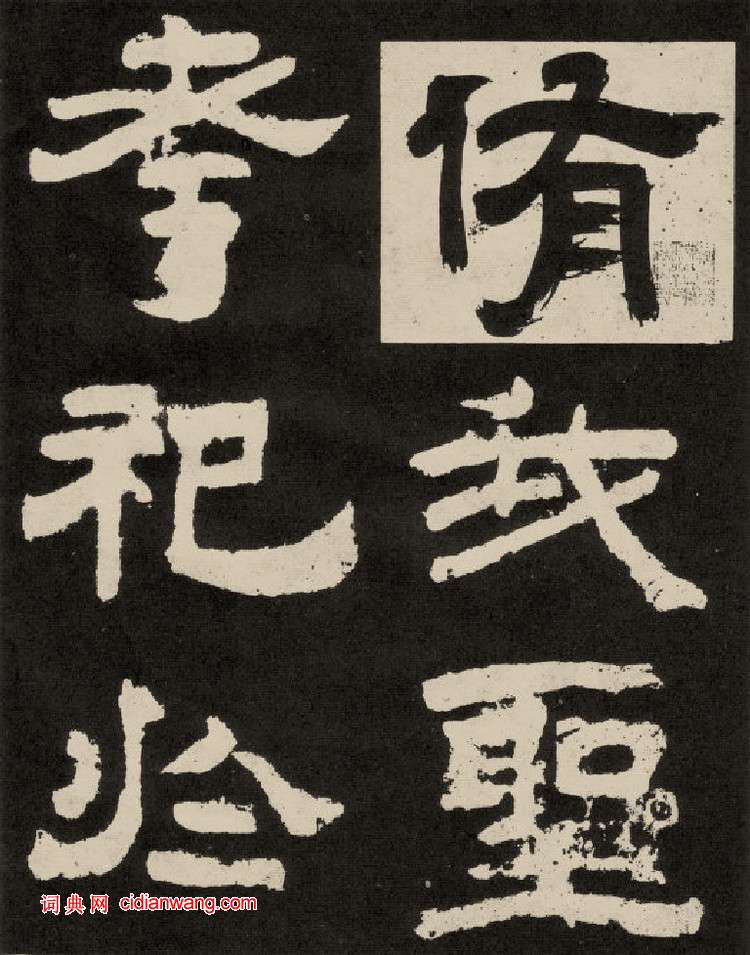 侑我聖
考祀於
词典网 cidianwang.com